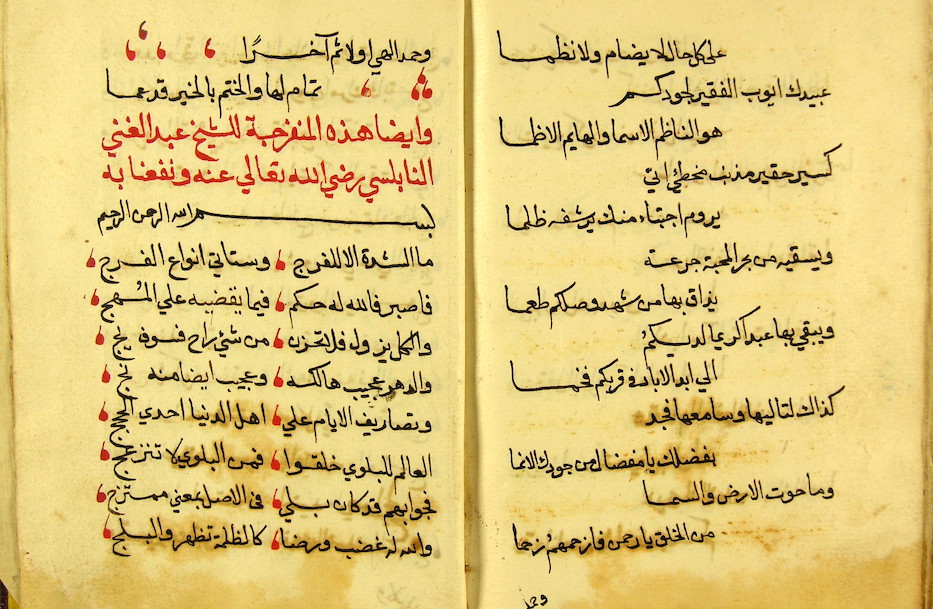 على كل حال لا يضام ولا نظما
عبيدك ايوب الفقير لجودكم
هو الناظم الاسما والهايم الاظما
كسير حقير مذنب مخطئ اتى
يروم اجتباء منك يرشفه ظلما
ويسقيه من بحر المحبة جرعة
يذاق بها من شهد وصلكم طعما
ويبقي بها عبد الكريم لديكم
الي ابد الاباد في قربكم فخما
كذلك لتاليها وسامعها فجد
بفضلك يا مفضال من جودك الانما
وما حوت الارض والسما
من الخلق يا رحمن فارحمهم رحما
وحمد الهي اولا ثم آخرًا
تمام لها والختم بالخير قد عما
وايضا هذه المنفرجة للشيخ عبد الغني
النابلسي رضي الله تعالي عنه ونفعنا به
بسم الله الرحمن الرحيم
ما الشدة الا للفرج وستاتي انواع الفرج
فاصبر فالله له حكم فيما يقضيه علي المهج
والكل يزول فلا تحزن من شئ راح فسوف يجي
والدهر عجيب هالكه وعجيب ايضا منه نجي
وتصاريف الايام علي اهل الدنيا احدي الحجج
العالم للبلوي خلقوا فمن البلوي لا تنزعج
فجوابهم قد كان بلي في الاصل بمعني ممتزج
والله له غضب ورضا كالظلمة تظهر والبلج